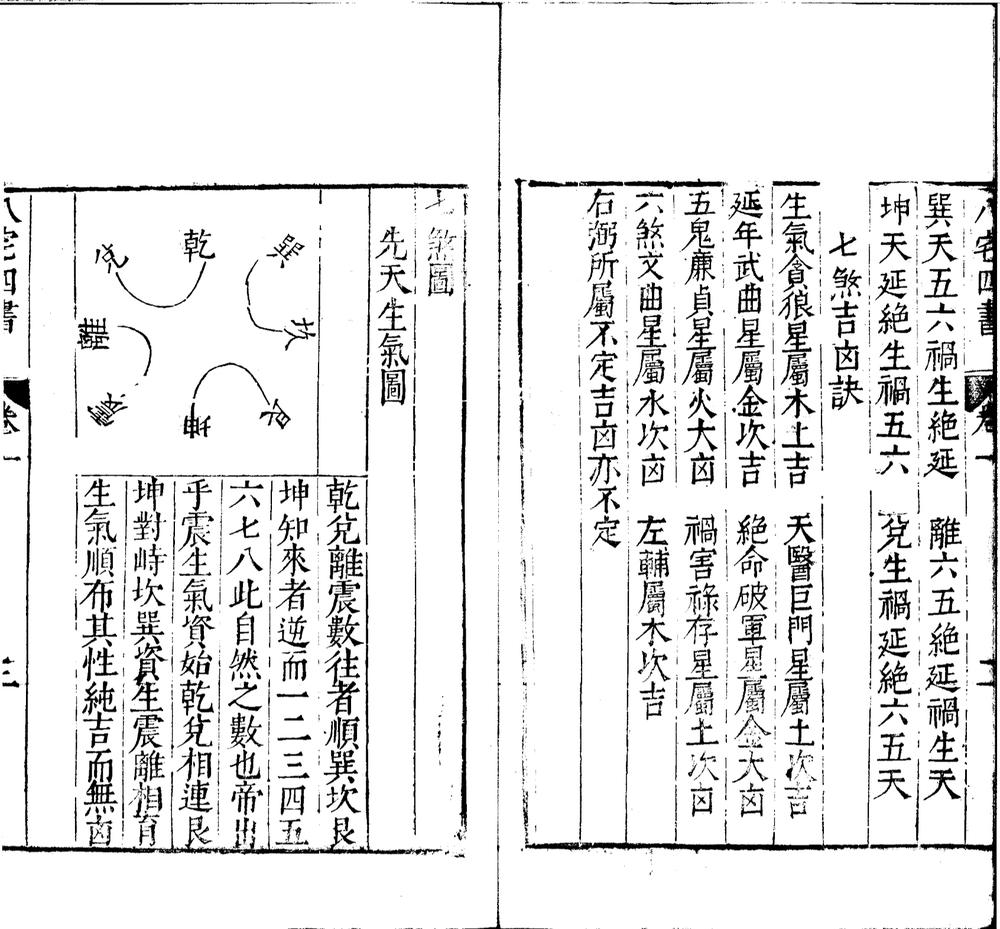 八宅四書 卷一 二
巽天五六禍生絶延 離六五絶延禍生天
坤天延絶生禍五六 兌生禍延絶六五天
七煞吉凶訣
生氣貪狼星屬木上吉 天醫巨門星屬土次吉
延年武曲星屬金次吉 絶命破軍星屬金大凶
五鬼廉貞星屬火大凶 禍害祿存星屬土次凶
六煞文曲星屬水次凶 左輔屬木次吉
右弼所屬不定吉凶亦不定
七煞圖
先天生氣圖
巽
坎
艮
乾
坤
兌
離
震
乾兌離震數往者順巽坎艮
坤知來者逆而一二三四五
六七八此自然之數也帝出
乎震生氣資始乾兌相連艮
坤對峙坎巽資生震離相育
生氣順布其性純吉而無凶
八宅四書 卷一 三